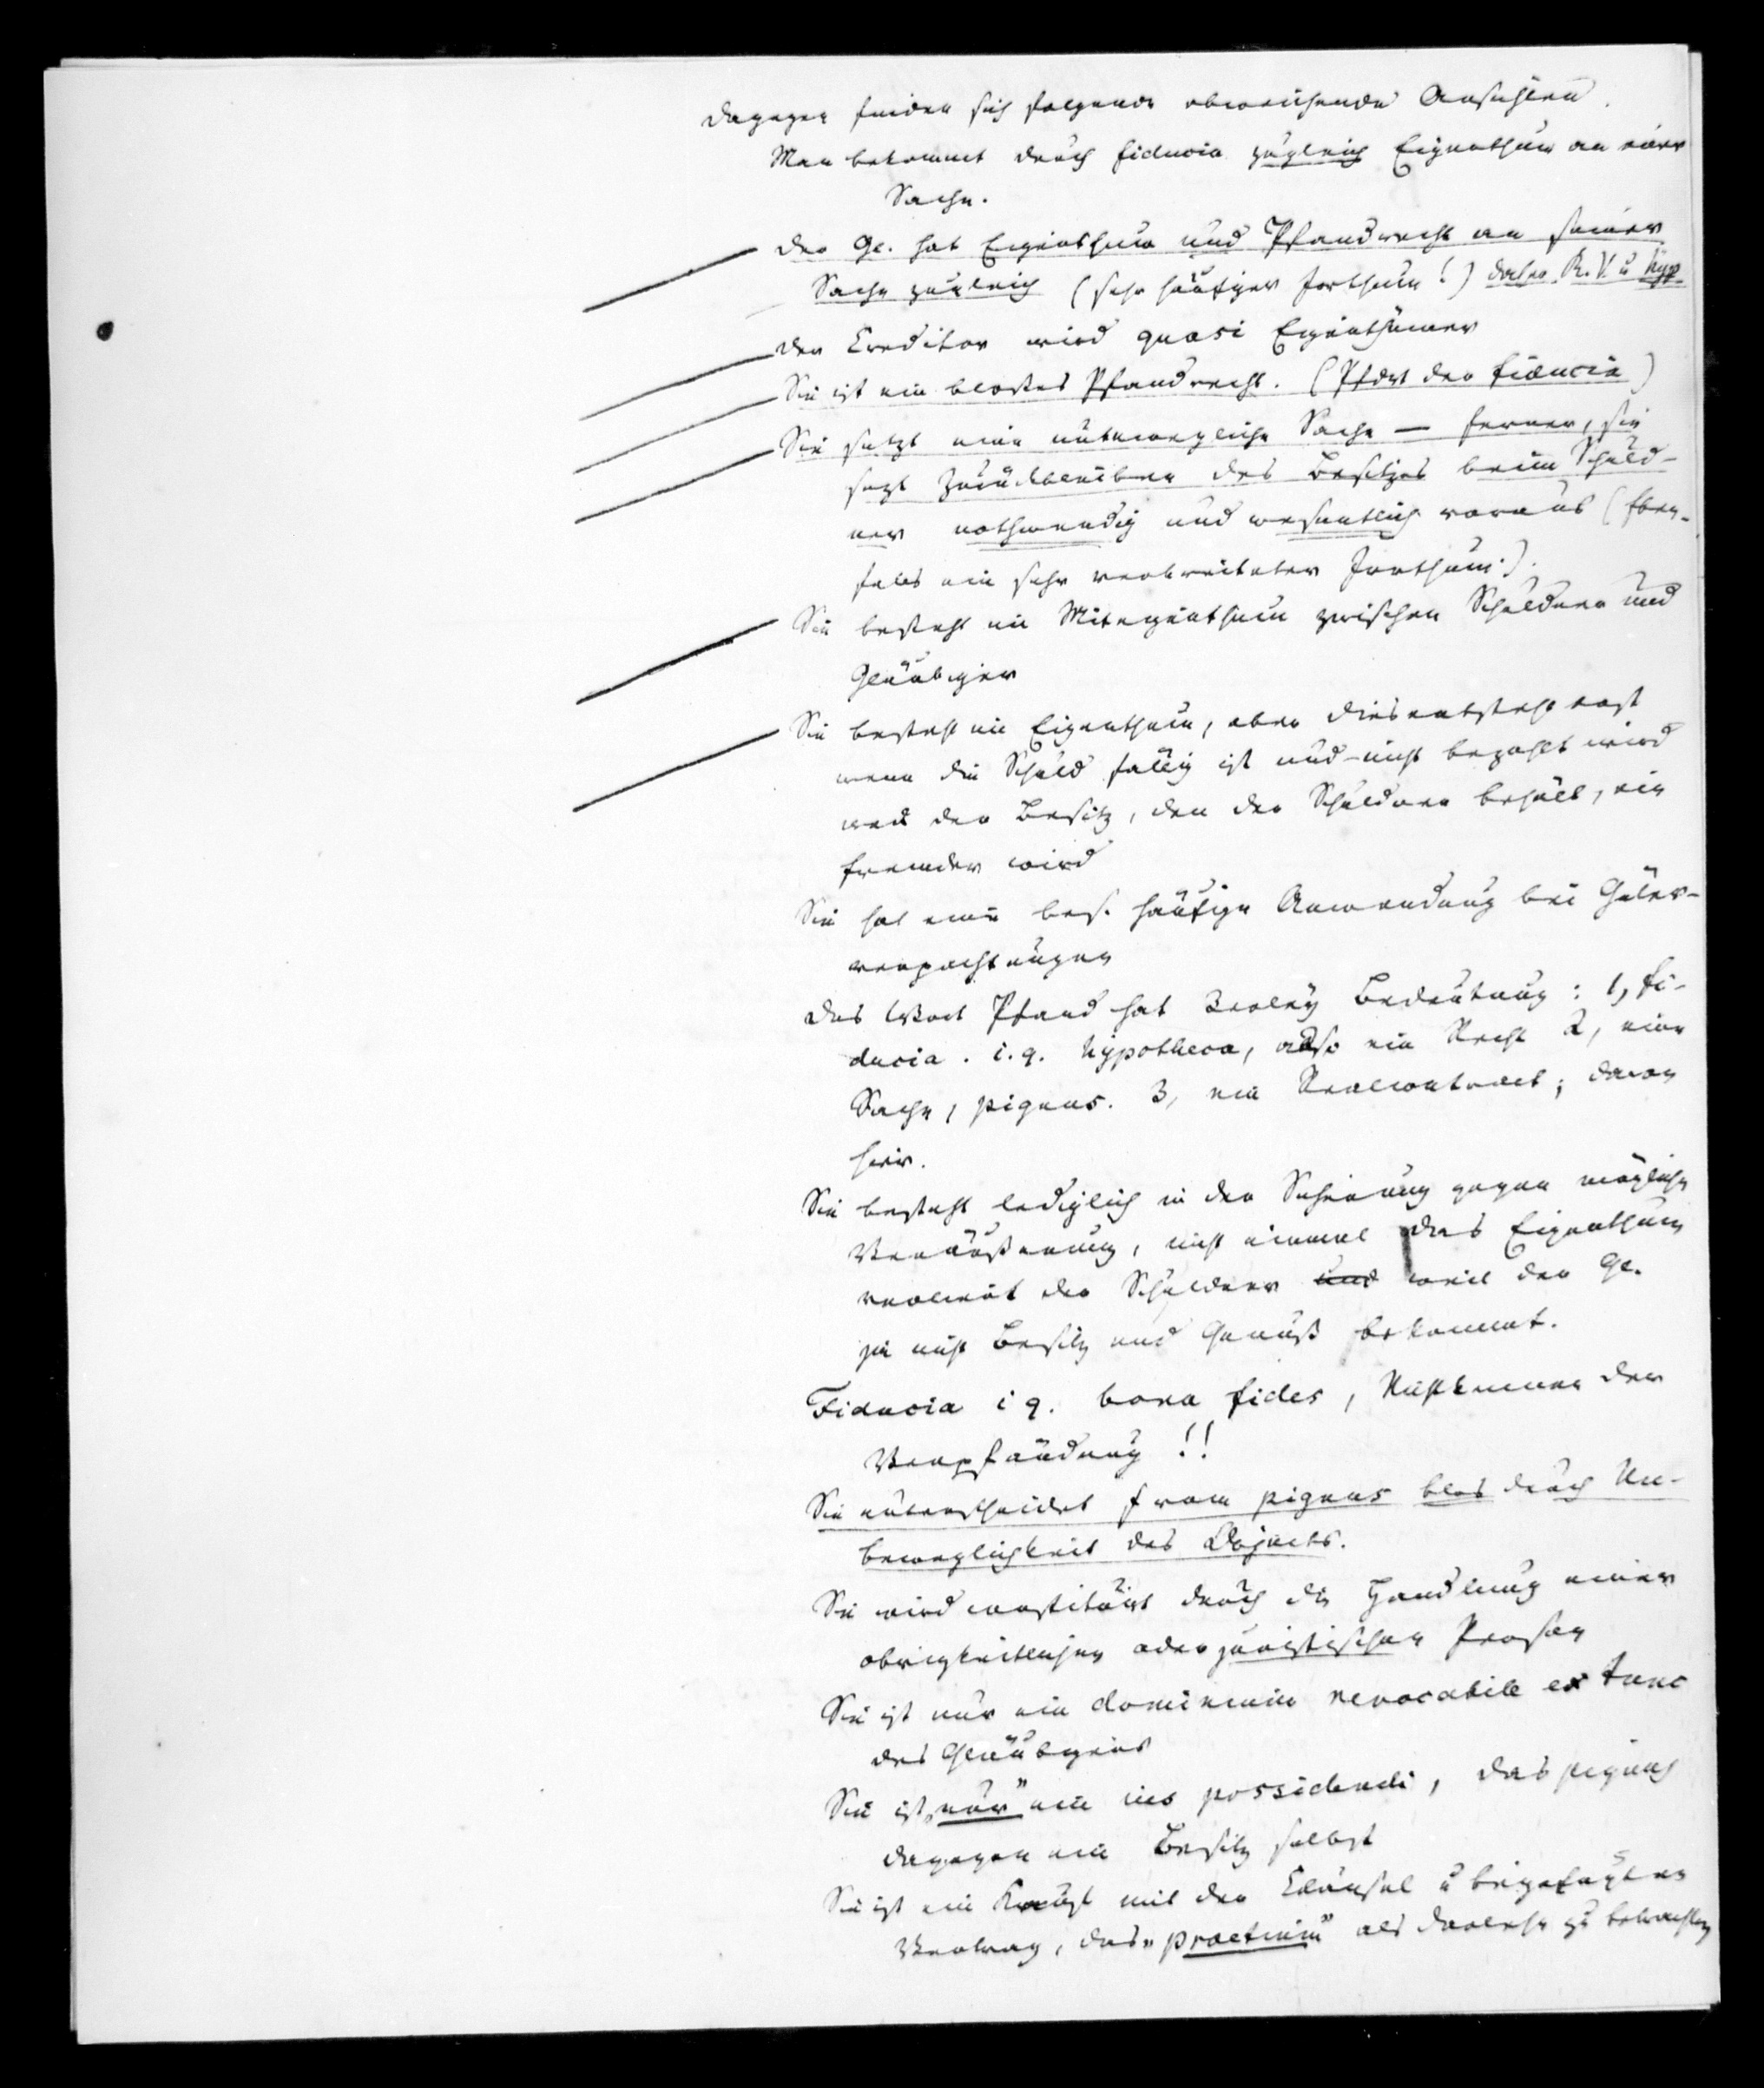 Dagegen finden sich folgende abweichende Ansichten.
Man bekommt durch fiducia zugleich Eigenthum an einer
Sache.
Der Gl. hat Eigenthum und Pfandrecht an seiner
Sache zugleich (sehr häufiger Irrthum!) daher R.V. u Hyp.
Der Creditor wird quasi Eigenthümer
Sie ist ein bloßes Pfandrecht. (Pfdr der fiducia)
Sie setzt eine unbewegliche Sache — ferner, sie
setzt Zurückbleiben des Besitzes beim Schuld-
ner nothwendig und wesentlich voraus (Eben-
falls ein sehr verbreiteter Irrthum!).
Sie besteht in Miteigenthum zwischen Schuldner und
Gläubiger
Sie besteht in Eigenthum, aber dies entsteht erst
wenn die Schuld fällig ist und nicht bezahlt wird
und der Besitz, den der Schuldner behält, ein
fremder wird
Sie hat eine bes. häufige Anwendung bei Güter-
verpachtungen
Das Wort Pfand hat 3erley Bedeutung: 1, fi-
ducia. i.q. hypotheca, also ein Recht 2, eine
Sache, pignus. 3, ein Realcontract; davon
hier.
Sie besteht lediglich in der Sicherung gegen mögliche
Veräußerung, nicht einmal das Eigenthum
verliert der Schuldner und weil der Gl.
ja nicht Besitz und Genuß bekommt.
Fiducia i q. bona fides, der
Verpfändung!!
Sie unterscheidet s vom pignus blos durch Un-
beweglichkeit des Objects.
Sie wird constituirt durch die Handlung einer
obrigkeitlichen oder juristischen Person
Sie ist nur ein dominium revocabile ex tunc
des Gläubigers
Sie ist „nur" ein ius possidendi, das pignus
dagegen ein Besitz selbst
Sie ist ein Kauf mit der Clausel u beigefügten
Vertrag, das „praetium" als Darlehn zu betrachten